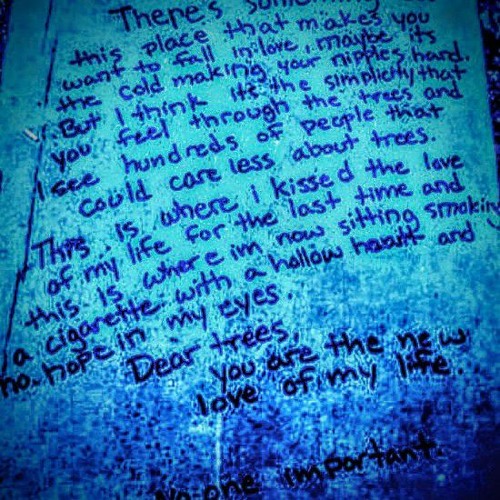 There's something
this place that makes you
want to fall in love, maybe its
the cold making your nipples hard.
But I think its the simplicity that
you feel through the trees and
I see hundreds of people that
could care less about trees.
This is where i kissed the love
of my life for the last time and
this is where im now sitting smoking
a cigarette with a hollow heart and
no hope in my eyes.
Dear trees,
you are the new
love of my life.
No one important.